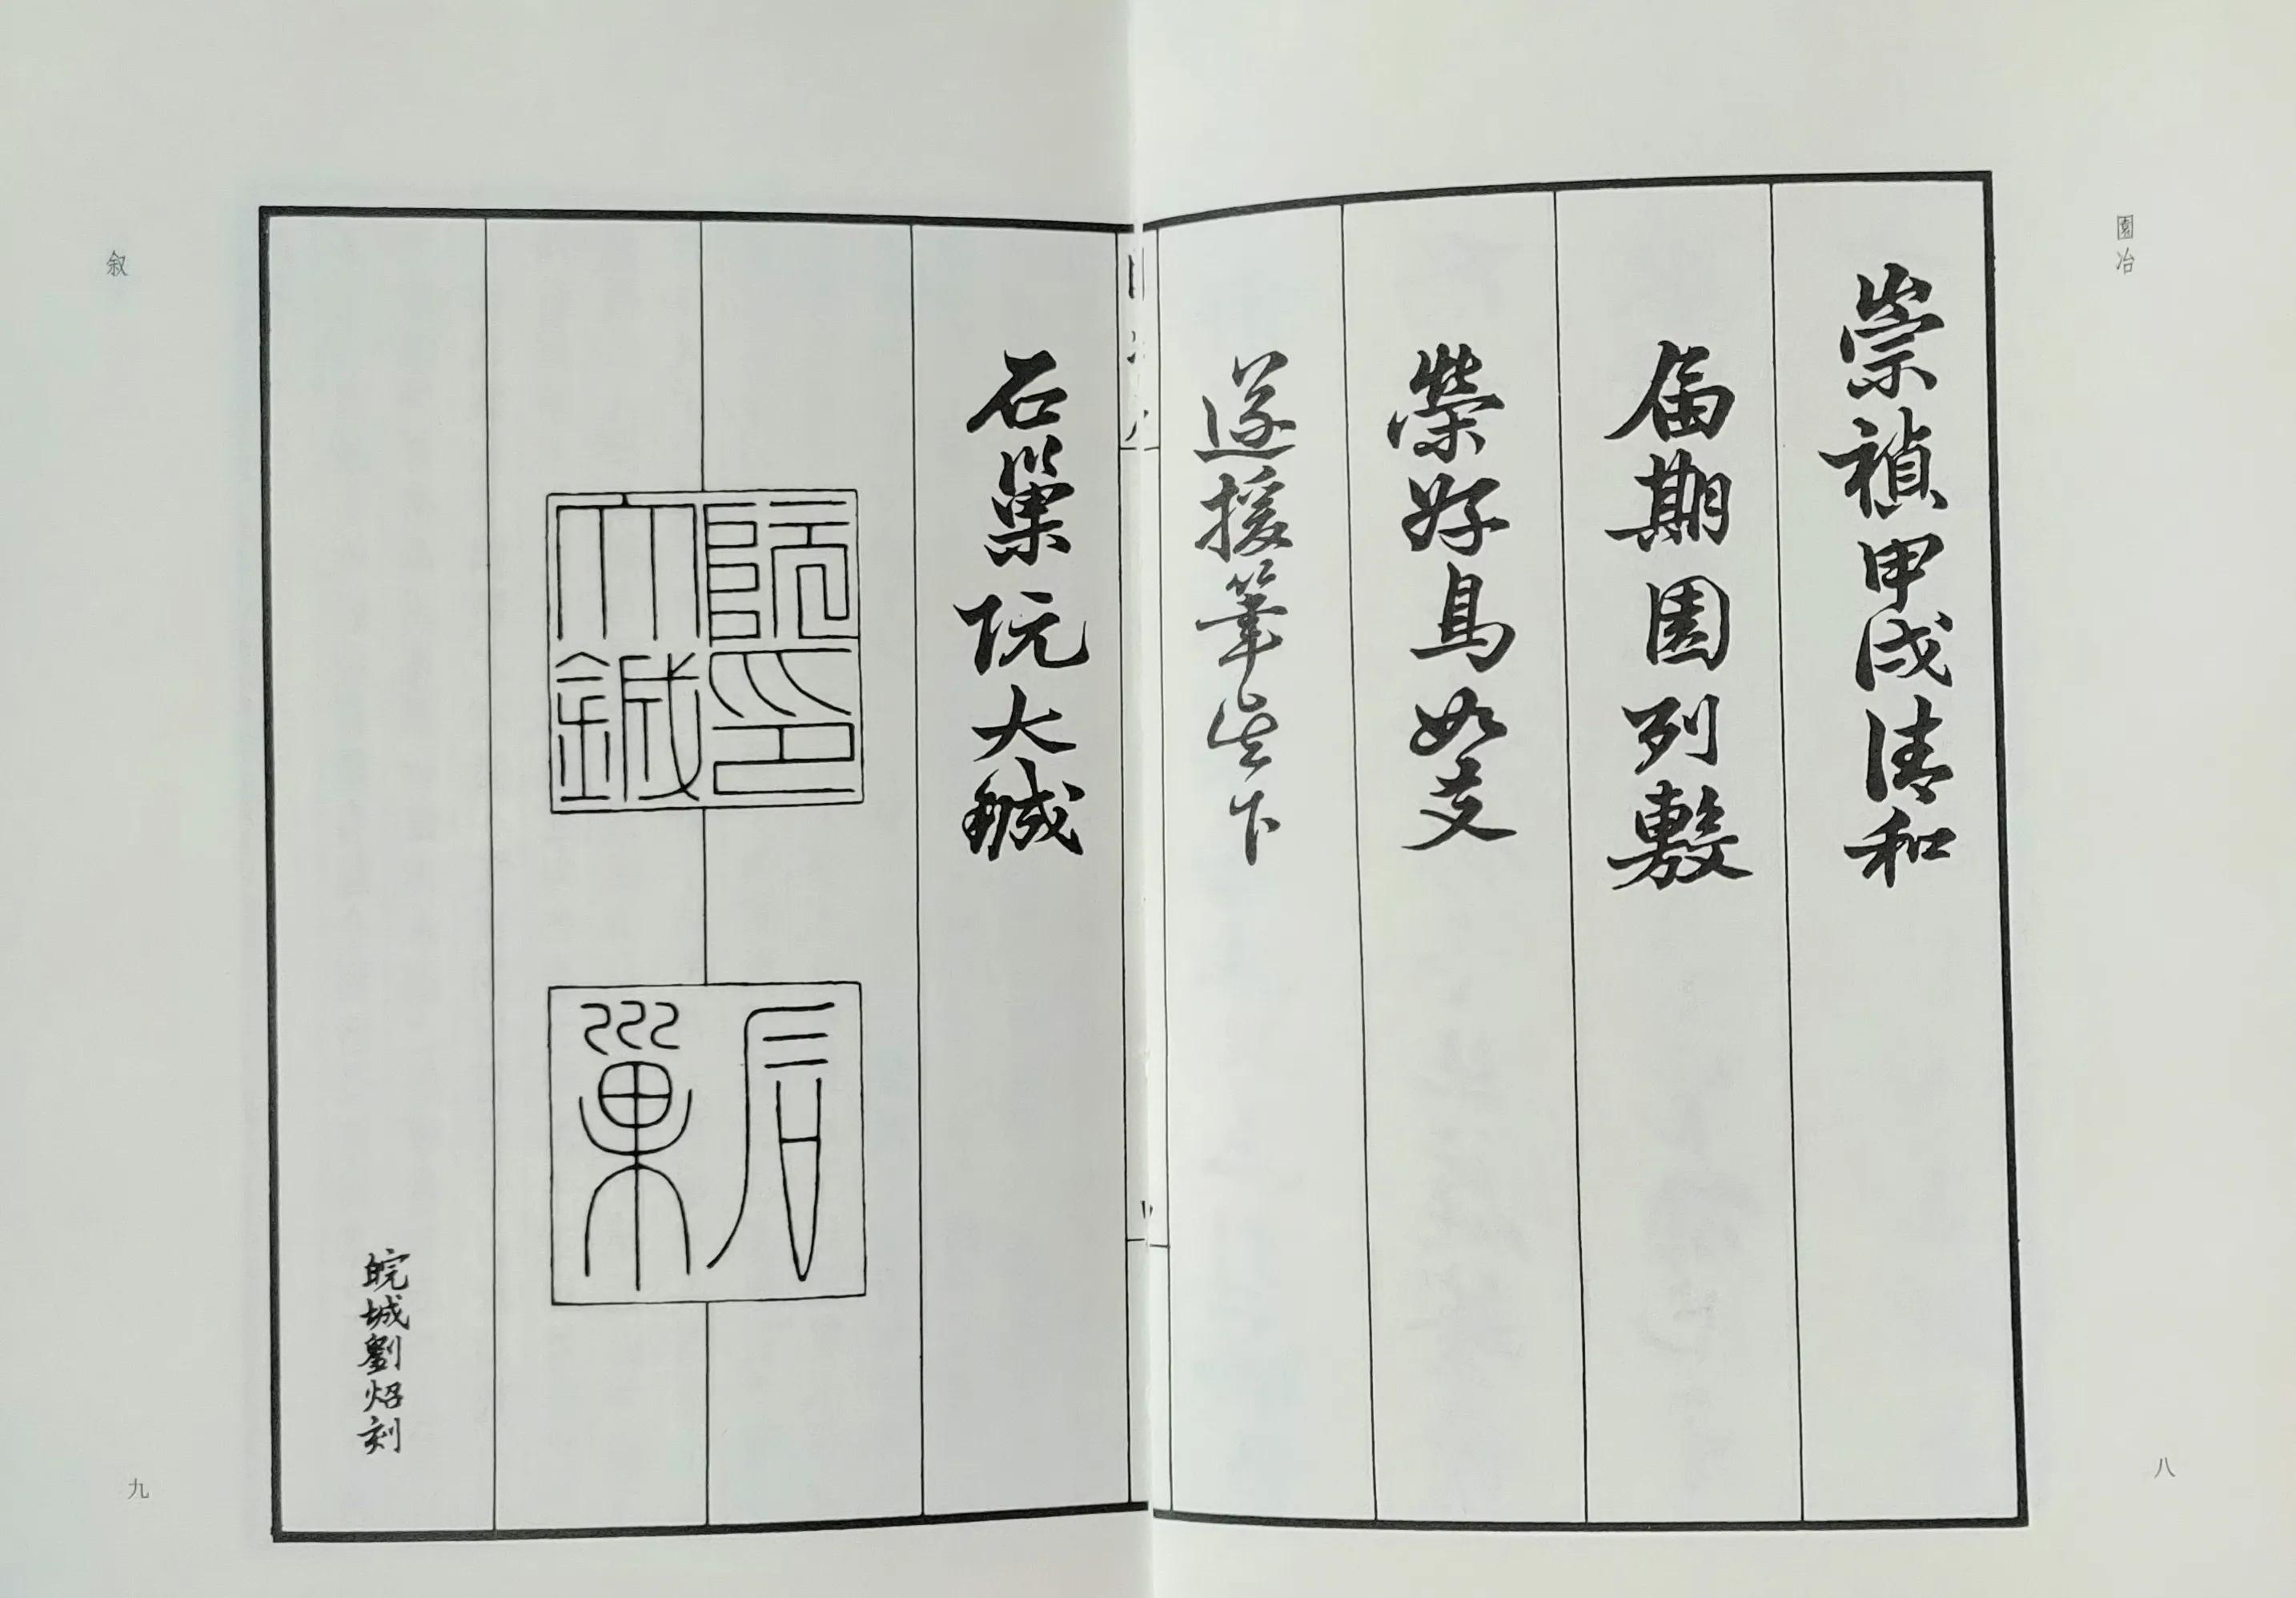 園冶
崇禎甲戌清和
屆期園列敷
榮好鳥如友
遂援筆其下
八
石巢阮大鋮
阮印大鋮
石巢
皖城劉炤刻
叙
九